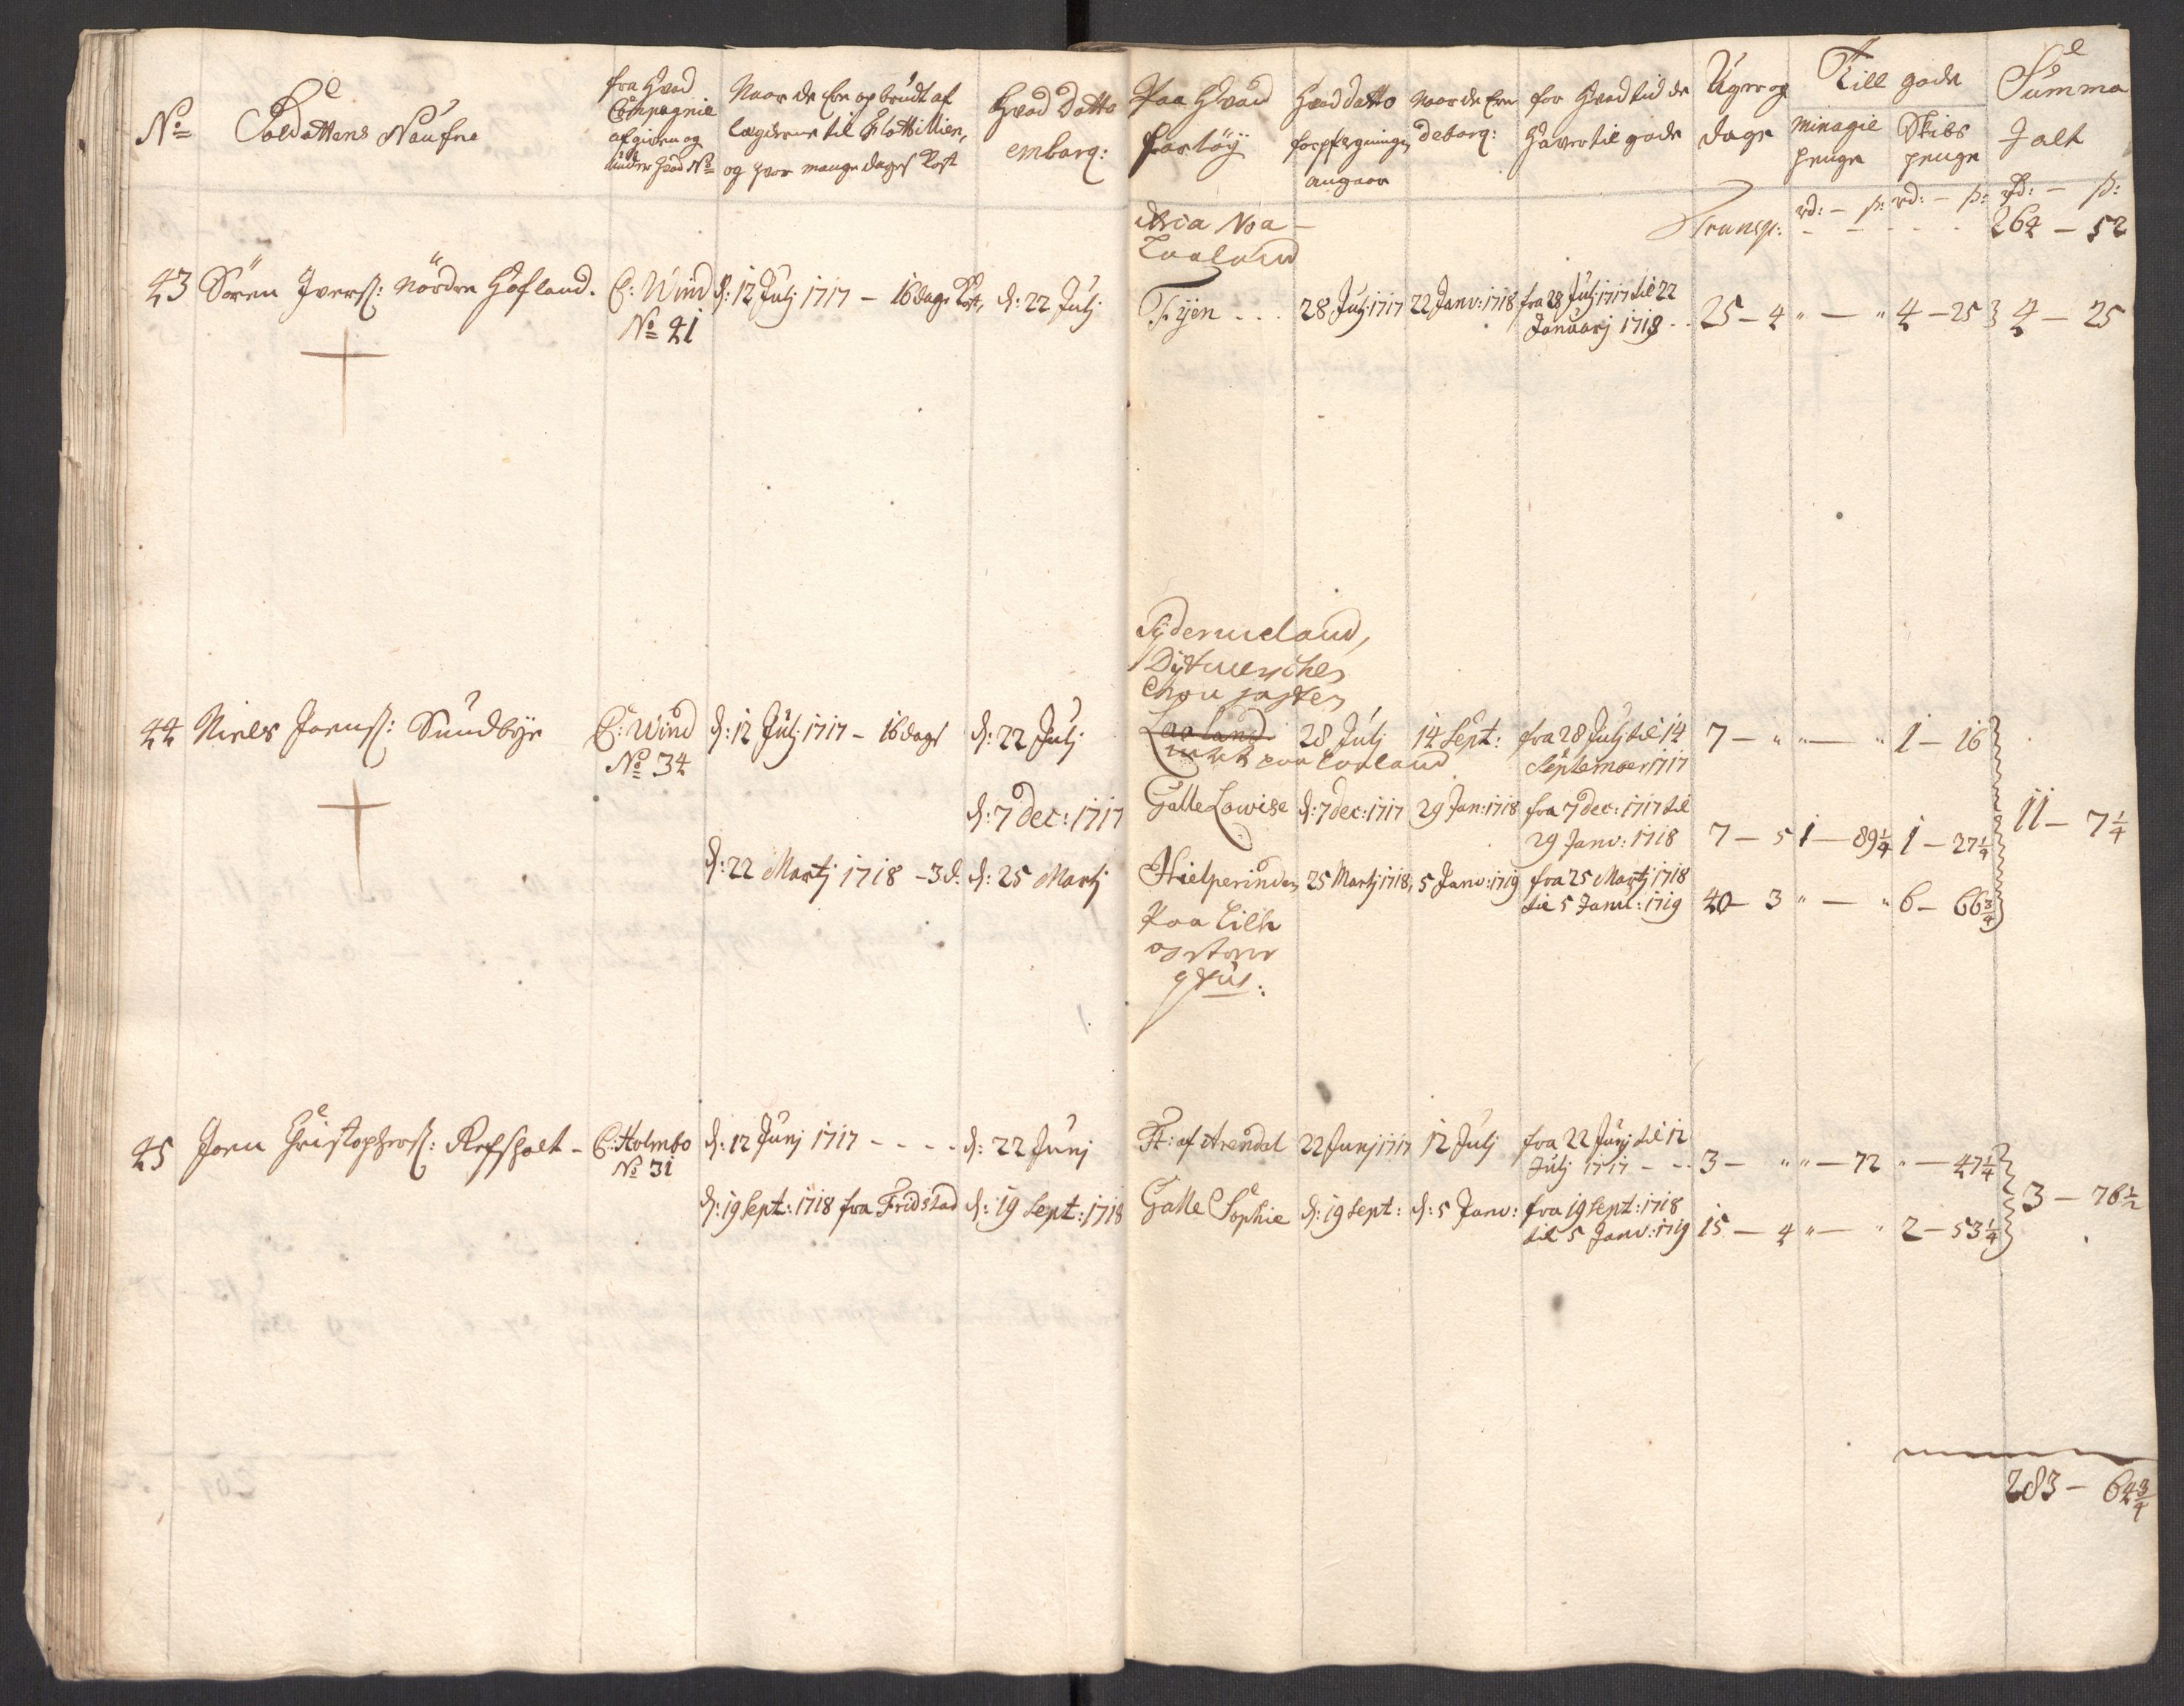 No Soldattens Naufne
fra Hvad
Compagnie
afgiven og
under hvad No
Naar de Ere opbrudt af
lægderne til Flottillien,
og hvor mange dages Kost
Hvad Datto
embarq:
Paa Hvad
fartöÿ
Hvad Datto
forpflegningen
angaar
Naar de Ere
debarq:
for Hvad tid de
Haver til gode
Uger og
dage
Till gode
Minagie
penge
Skibs
penge
Summa
I alt
rd: – s: rd: – s: rd: – s:
Transp: 264 – 52
Laaland
43 Sören Iverss: Nördre Hofland. C: Wind d: 12 Julj 1717 – 16 dage Kost, d: 22 Julj Fÿen 28 Julj 1717 22 Janv: 1718 fra 28 Julj 1717 til 22 25 – 4 " – " 4 – 25 4 – 25
No 41 Januarj 1718
Sÿdermeland,
Dÿtmerschen
44 Niels Joenss: Sundbÿe C: Wind d: 12 Julj 1717 – 16 dage d: 22 Julj Laaland 28 Julj 14 Sept: fra 28 Julj til 14 7 – " " – " 1 – 16
No 34 paa Laaland September 1717
d: 7 Dec: 1717 Galle Lowise d: 7 Dec: 1717 29 Jan: 1718 fra 7 Dec: 1717 til
29 Janv: 1718 7 – 5 1 – 89 1/4 1 – 27 1/4 11 – 7 1/4
d: 22 Martj 1718 – 3 d. d: 25 Martj Hielperinden 25 Martj 1718, 5 Janv: 1719 fra 25 Martj 1718
til 5 Janv: 1719 40 – 3 " – " 6 – 66 3/4
Paa
45 Joen Christophers: Refsholt – C: Holmbo d: 12 Junj 1717 – – – – d: 22 Junj Ft: af Arendal 22 Junj 1717 12 Julj fra 22 Junj til 12
No 31 Julj 1717 – – 3 – " " – 72 " – 47 1/4
d: 19 Sept: 1718 fra Fridstad d: 19 Sept: 1718 Galle Sophie d: 19 Sept: d: 5 Janv: fra 19 Sept: 1718 3 – 76 1/2
til 5 Janv: 1719 15 – 4 " – " 2 – 53 1/4
283 – 64 3/4